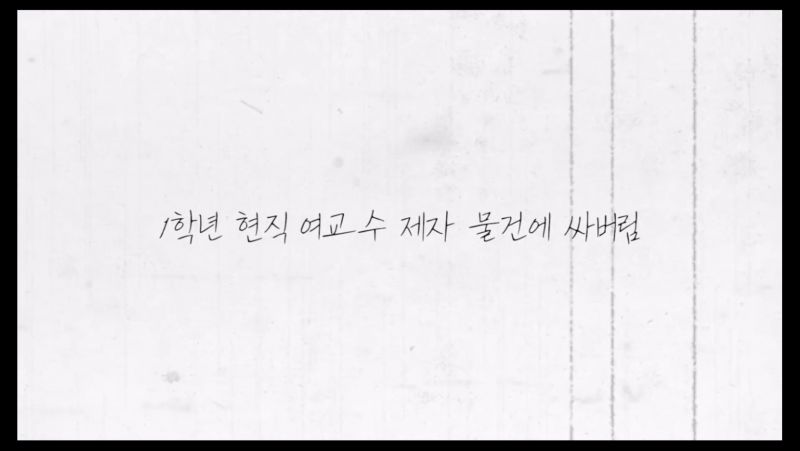 1학년 현직 여교수 제자 물건에 싸버림